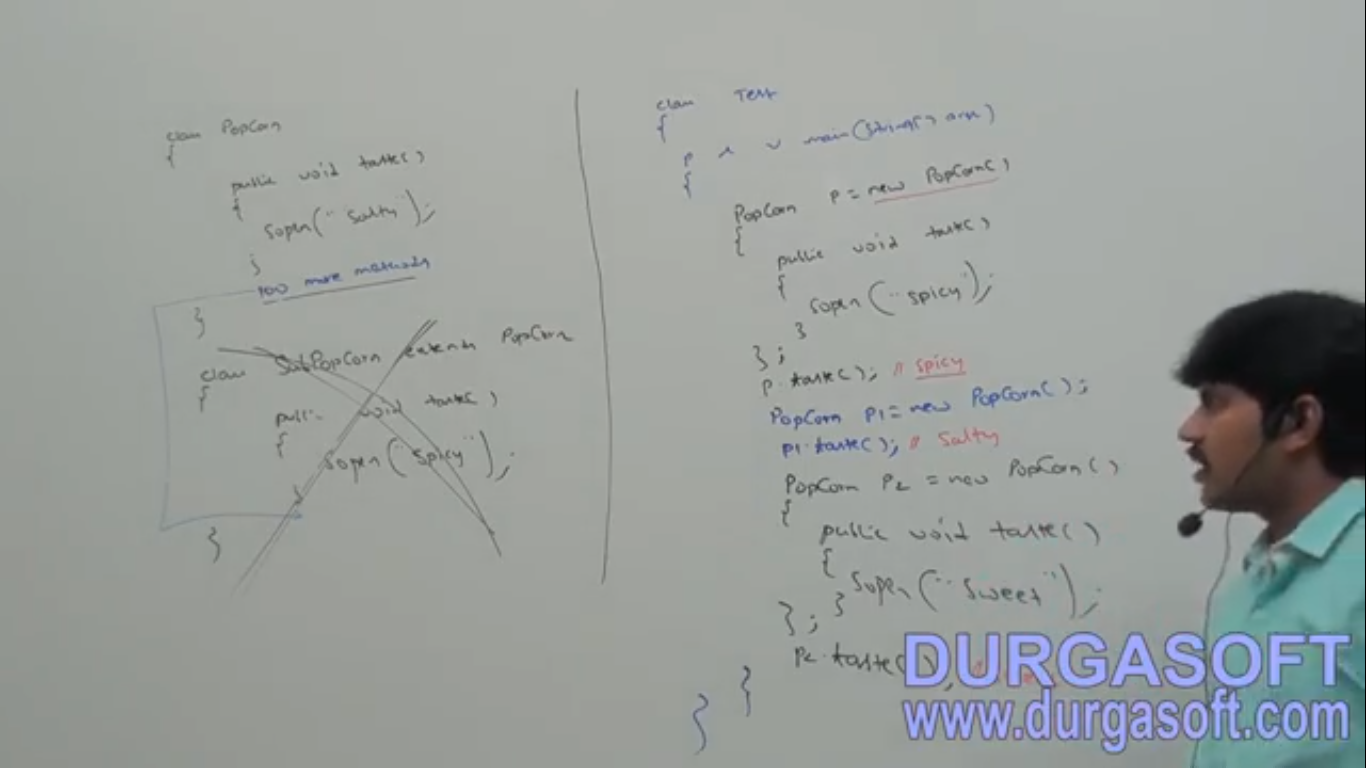 class PopCorn
{
public void taste()
{
sopln("Salty");
}
100 more methods
}
class SubPopCorn extends PopCorn
{
public void taste()
{
sopln("Spicy");
}
}
class Test
{
p s v main(String[] args)
{
PopCorn p = new PopCorn()
{
public void taste()
{
sopln("spicy");
}
};
p.taste(); // spicy
PopCorn p1 = new PopCorn();
p1.taste(); // Salty
PopCorn p2 = new PopCorn()
{
public void taste()
{
sopln("Sweet");
}
};
p2.taste(); //
}
}
DURGASOFT
www.durgasoft.com